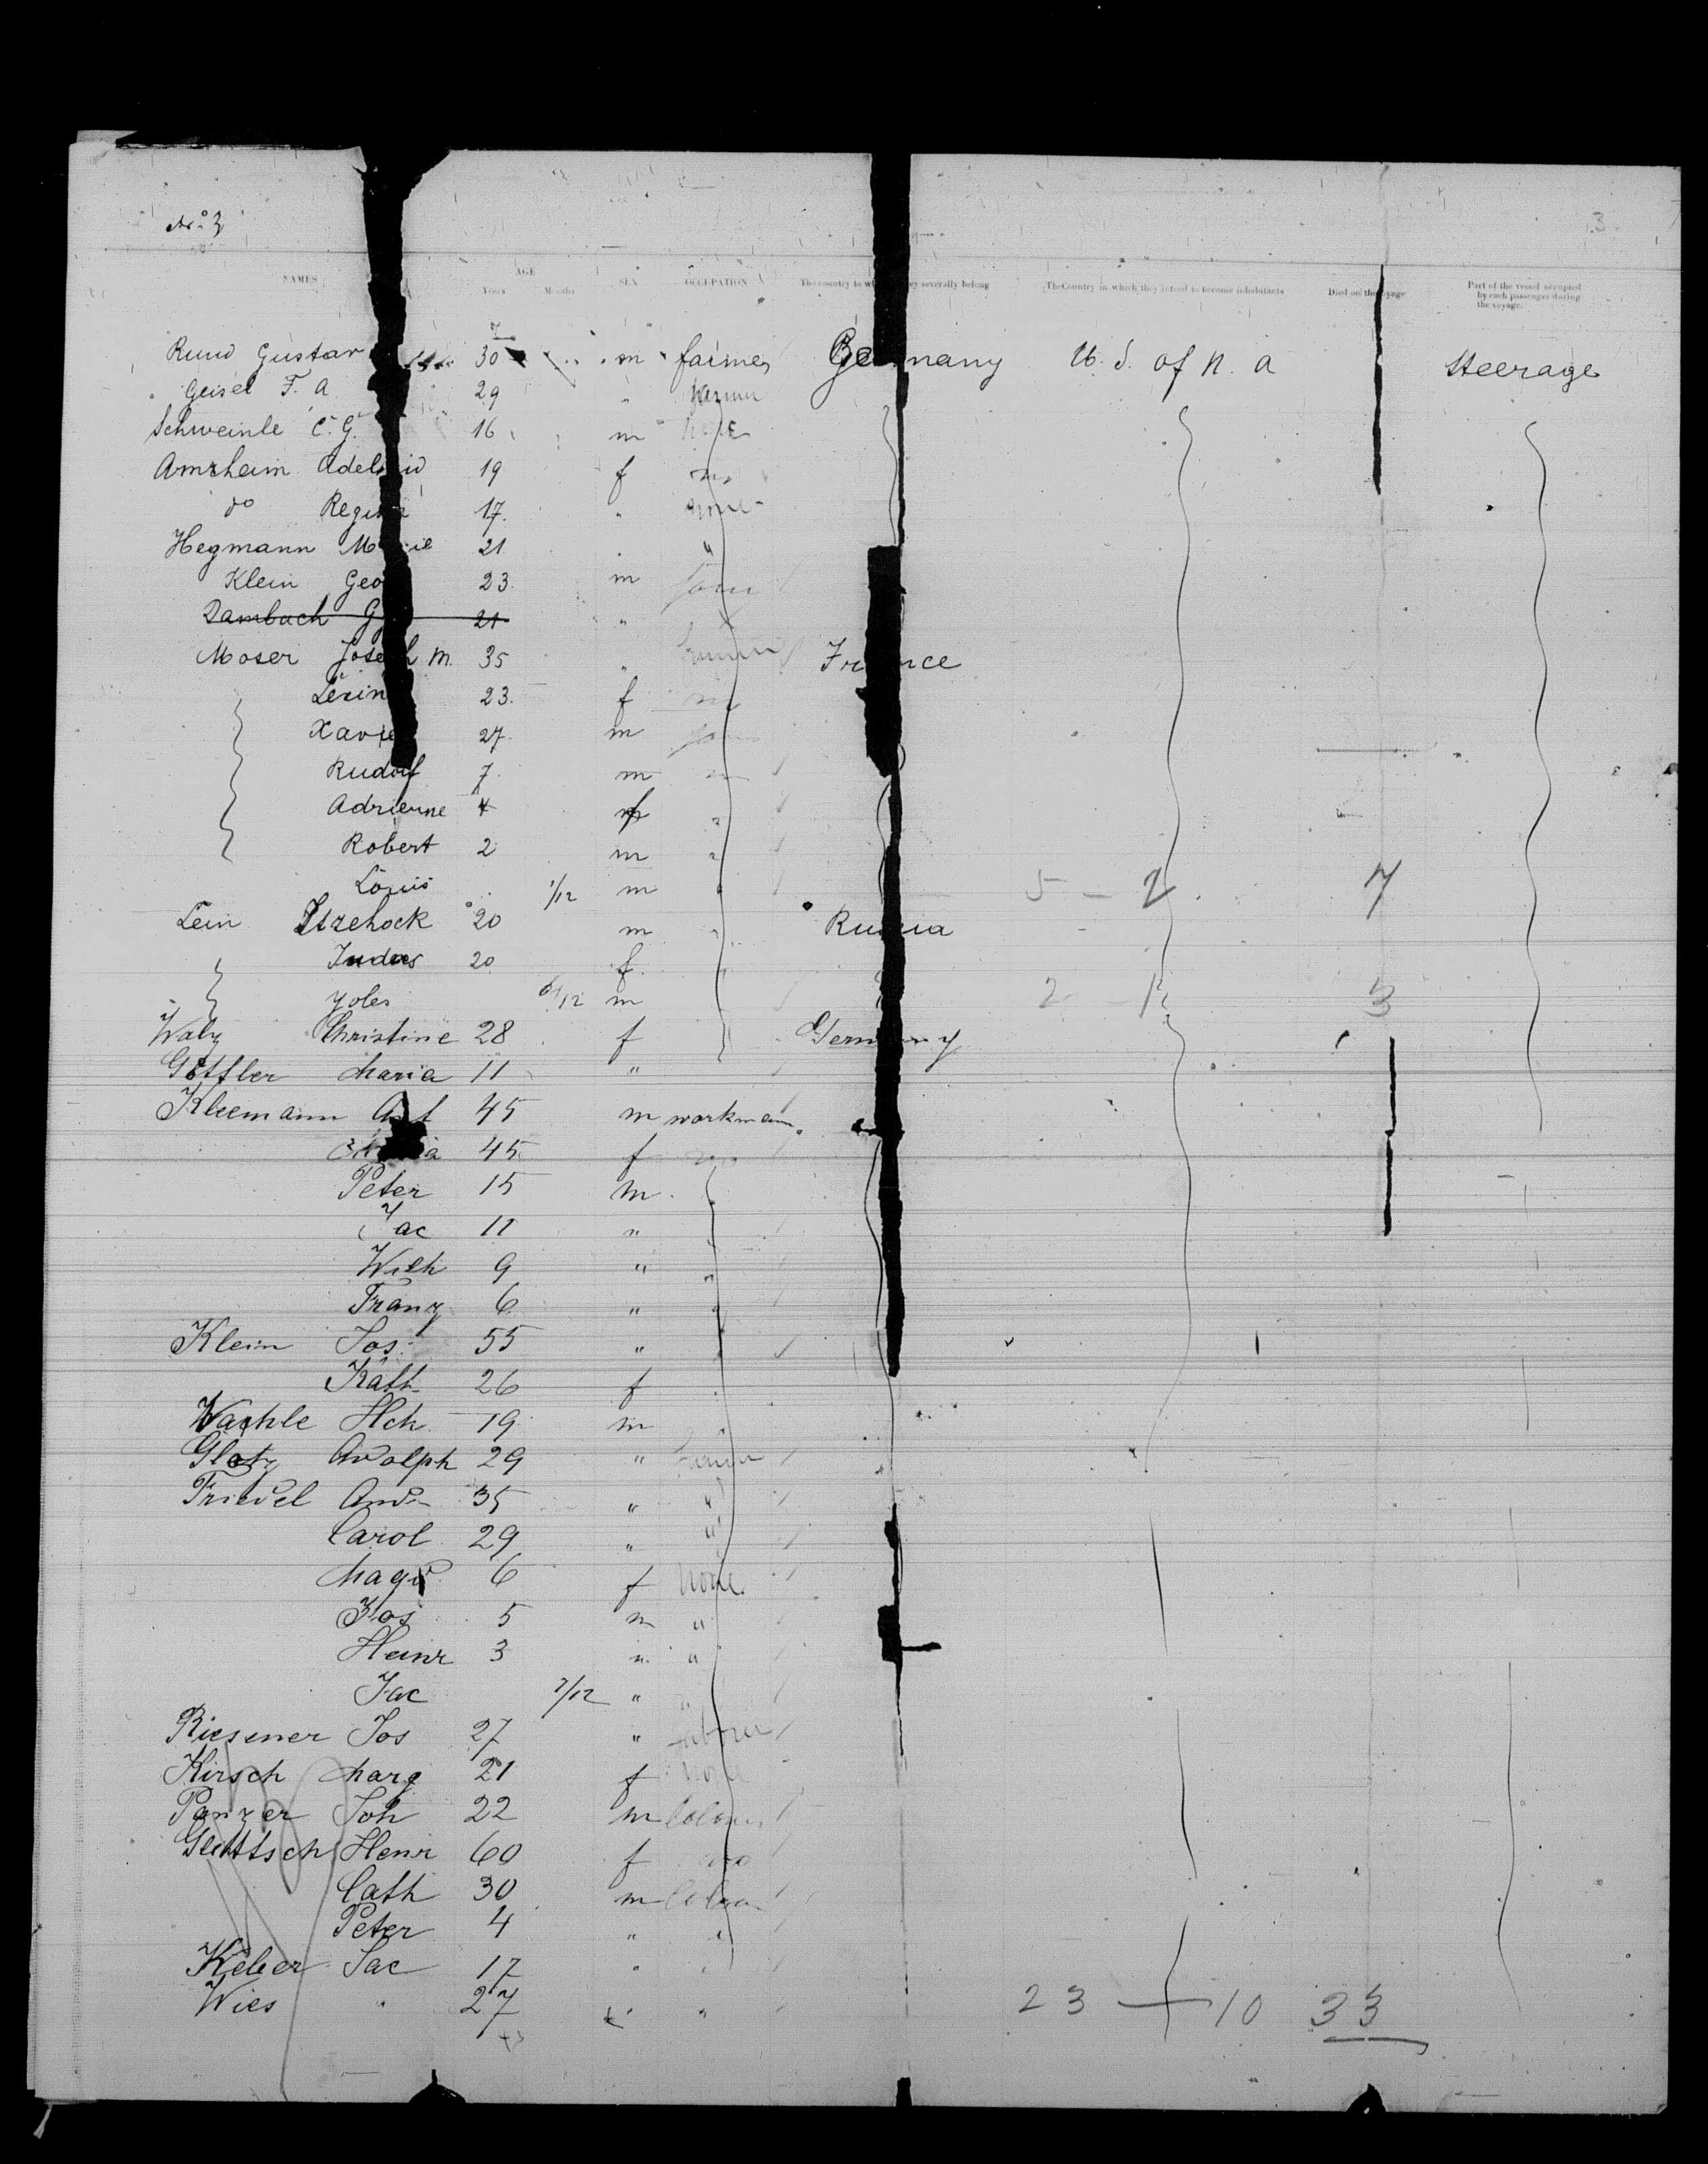 No. 3
3
NAMES AGE Years Months SEX OCCUPATION The country to wh ey severally belong The Country in which they intend to become inhabitants Died on the voyage Part of the vessel occupied by each passenger during the voyage.
Gustav 30 m farmer Germany U. S. of N. A Steerage
Geisel F. A 29 " farmer
Schweinle C. G. 16 m none
Arnsheim Adelaid 19 f
do Regina 17 " none
Hegmann Marie 21 "
Klein Geo 23 m
Dambach G 21 "
Moser Joseph M. 35 " France
23 f
Xavier 27 m
Rudolf 7 m
Adrienne 4 f "
Robert 2 m "
Louis 1/12 m 5 – 2 7
Lein 20 m Russia
20 f
Yoles 6/12 m 2 – 1 3
Walz Christine 28 f Germany
Göttler Maria 11 "
Kleemann 45 m workman
45 f
Peter 15 m
Jac 11 "
Wilh 9 " "
Franz 6 "
Klein Jos. 55 "
Käth 26 f
Wachle Hch 19 m
Glatz Adolph 29 " farmer
Friedel And 35 " "
Carol 29 " "
Magd 6 f none
Jos 5 m "
Heinr 3 " "
Jac 7/12 "
Riesener Jos 27 "
Kirsch Marg 21 f none
Panzer Joh 22 m
Henr 60 f
Cath 30 m
Peter 4 "
Keber Jac 17 "
Wies 27 " 23 – 10 33